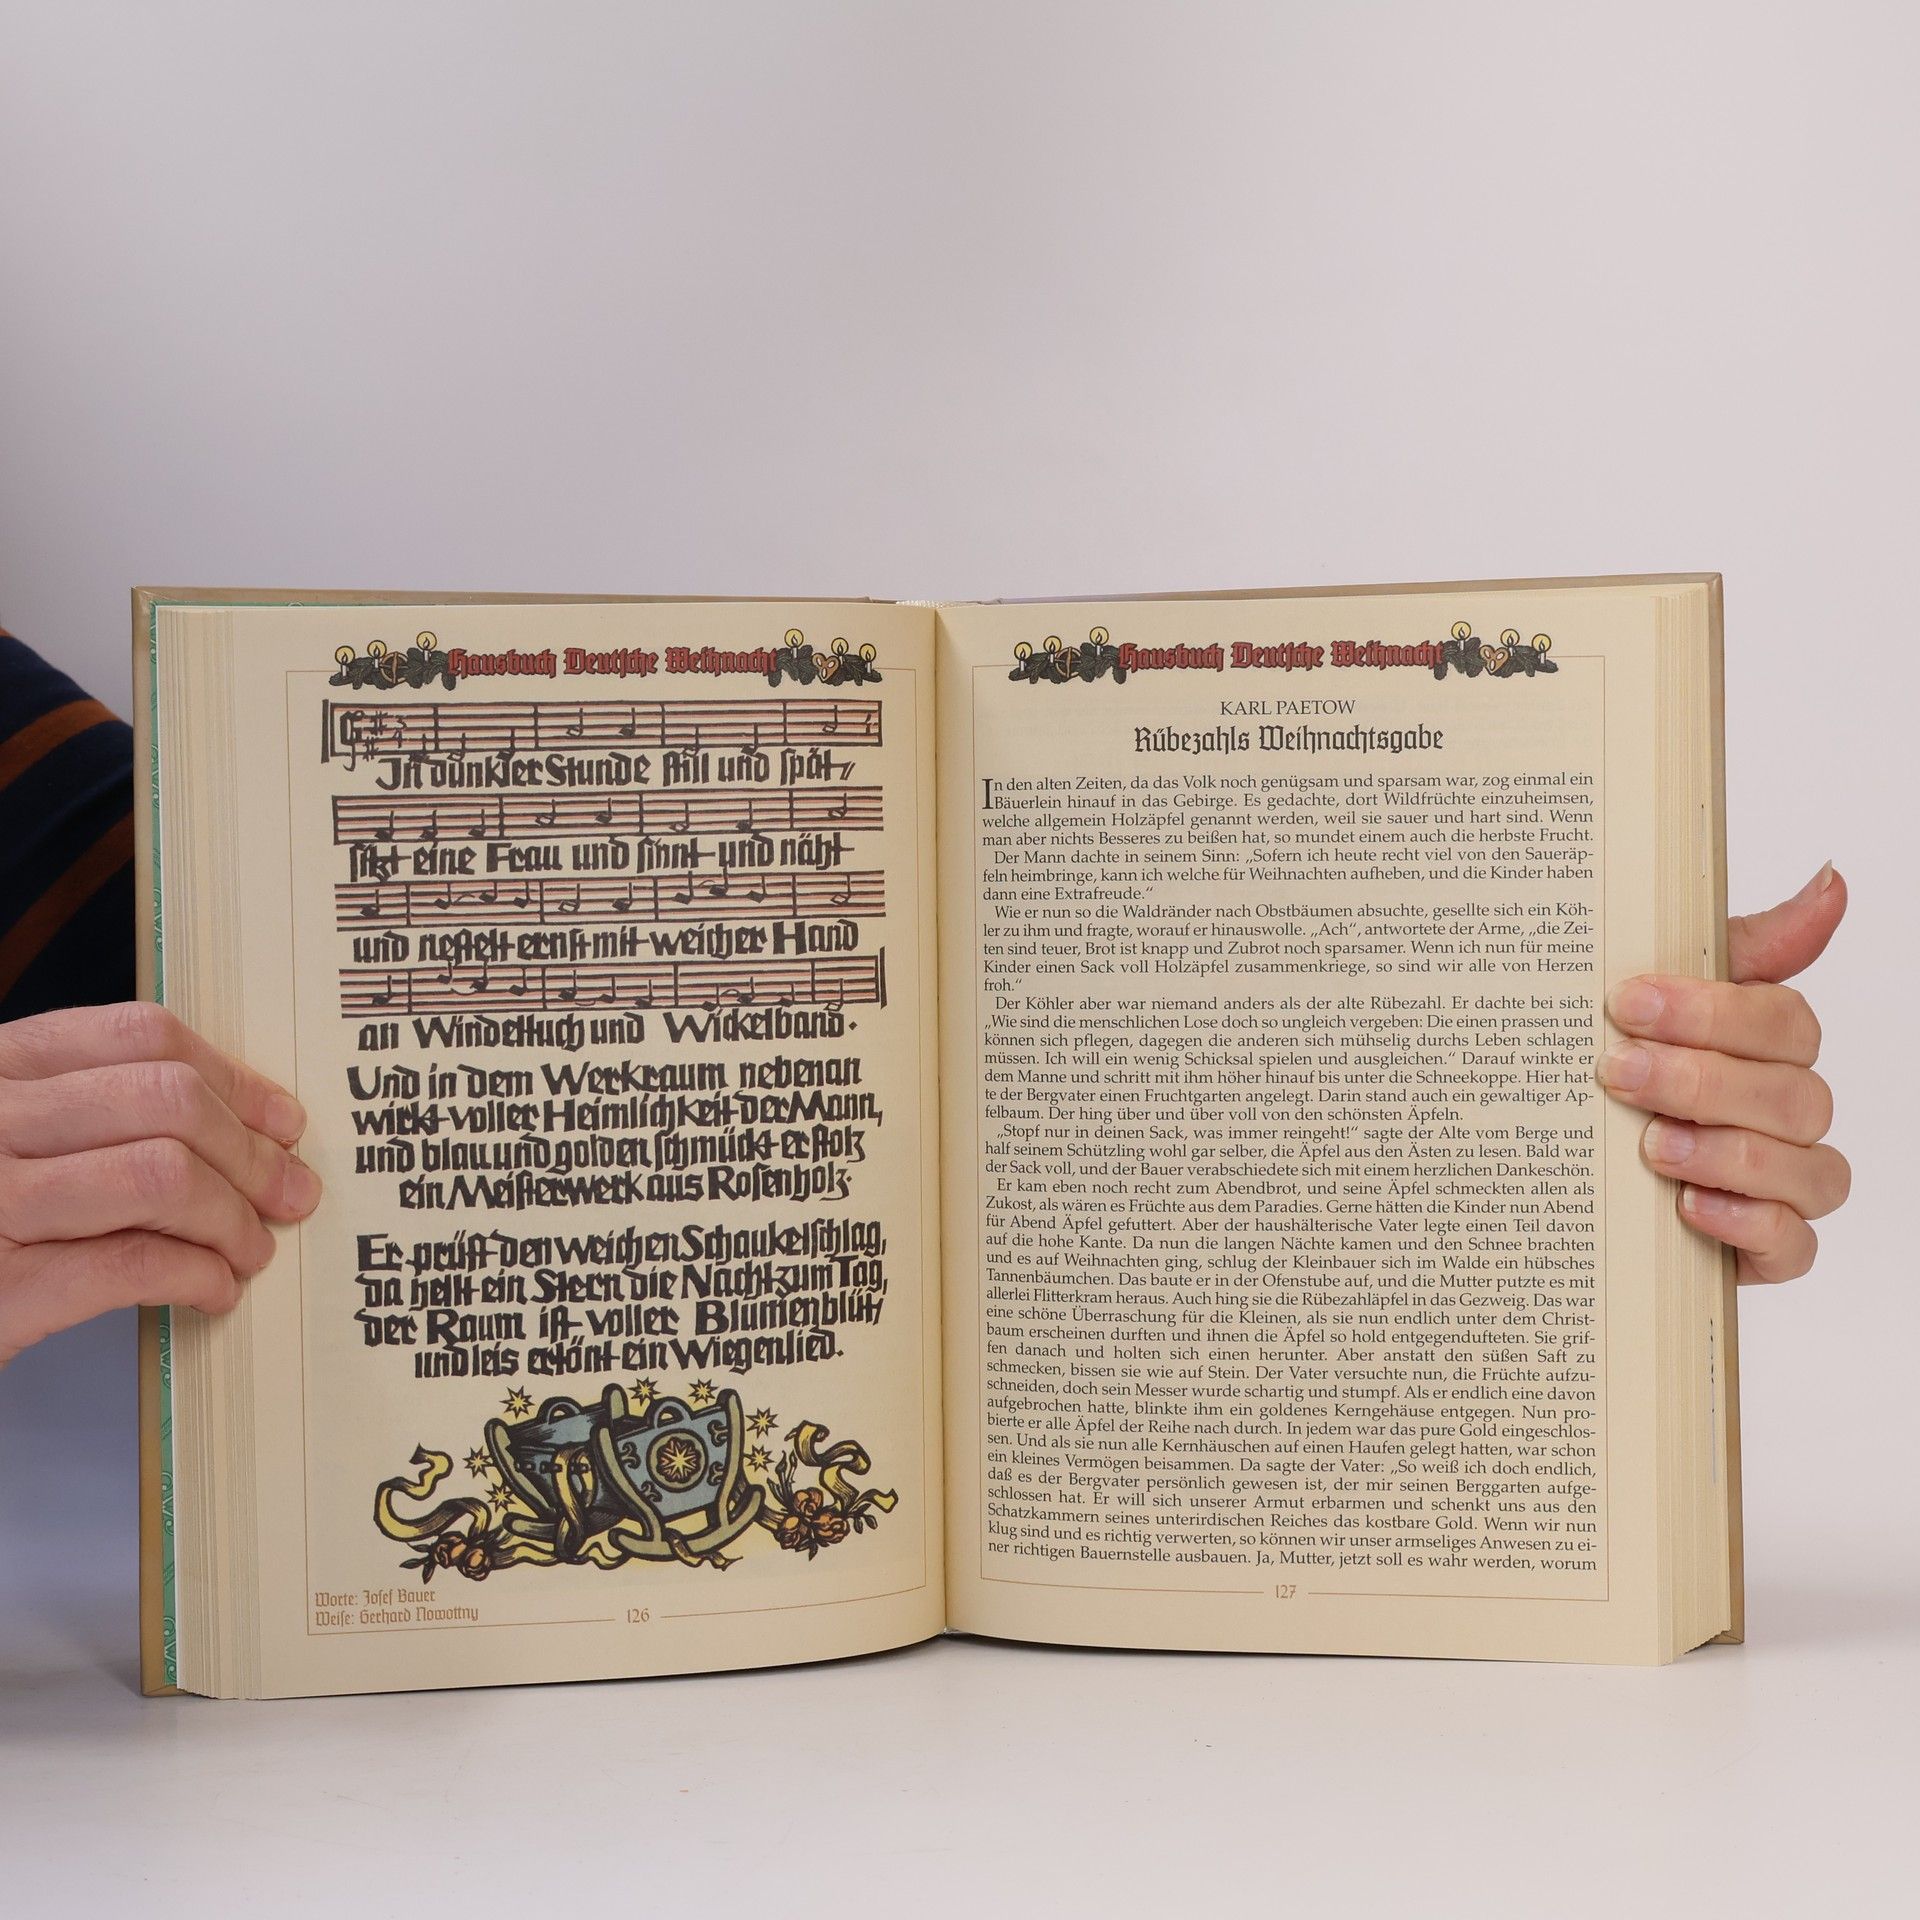 Hausbuch Deutsche Weihnacht
In dunkler Stunde still und spät,
sitzt eine Frau und sinnt und näht
und nestelt ernst mit weicher Hand
an Windeltuch und Wickelband.
Und in dem Werkraum nebenan
wirkt voller Heimlichkeit der Mann,
und blau und golden schmückt er stolz
ein Meisterwerk aus Rosenholz.
Er prüft den weichen Schaukelschlag,
da hellt ein Stern die Nacht zum Tag,
der Raum ist voller Blumenblüt,
und leis ertönt ein Wiegenlied.
Worte: Josef Bauer
Weise: Gerhard Nowottny
126
Hausbuch Deutsche Weihnacht
KARL PAETOW
Rübezahls Weihnachtsgabe
In den alten Zeiten, da das Volk noch genügsam und sparsam war, zog einmal ein
Bäuerlein hinauf in das Gebirge. Es gedachte, dort Wildfrüchte einzuheimsen,
welche allgemein Holzäpfel genannt werden, weil sie sauer und hart sind. Wenn
man aber nichts Besseres zu beißen hat, so mundet einem auch die herbste Frucht.
Der Mann dachte in seinem Sinn: „Sofern ich heute recht viel von den Saueräp-
feln heimbringe, kann ich welche für Weihnachten aufheben, und die Kinder haben
dann eine Extrafreude.“
Wie er nun so die Waldränder nach Obstbäumen absuchte, gesellte sich ein Köh-
ler zu ihm und fragte, worauf er hinauswolle. „Ach“, antwortete der Arme, „die Zei-
ten sind teuer, Brot ist knapp und Zubrot noch sparsamer. Wenn ich nun für meine
Kinder einen Sack voll Holzäpfel zusammenkriege, so sind wir alle von Herzen
froh.“
Der Köhler aber war niemand anders als der alte Rübezahl. Er dachte bei sich:
„Wie sind die menschlichen Lose doch so ungleich vergeben: Die einen prassen und
können sich pflegen, dagegen die anderen sich mühselig durchs Leben schlagen
müssen. Ich will ein wenig Schicksal spielen und ausgleichen.“ Darauf winkte er
dem Manne und schritt mit ihm höher hinauf bis unter die Schneekoppe. Hier hat-
te der Bergvater einen Fruchtgarten angelegt. Darin stand auch ein gewaltiger Ap-
felbaum. Der hing über und über voll von den schönsten Äpfeln.
„Stopf nur in deinen Sack, was immer reingeht!“ sagte der Alte vom Berge und
half seinem Schützling wohl gar selber, die Äpfel aus den Ästen zu lesen. Bald war
der Sack voll, und der Bauer verabschiedete sich mit einem herzlichen Dankeschön.
Er kam eben noch recht zum Abendbrot, und seine Äpfel schmeckten allen als
Zukost, als wären es Früchte aus dem Paradies. Gerne hätten die Kinder nun Abend
für Abend Äpfel gefuttert. Aber der haushälterische Vater legte einen Teil davon
auf die hohe Kante. Da nun die langen Nächte kamen und den Schnee brachten
und es auf Weihnachten ging, schlug der Kleinbauer sich im Walde ein hübsches
Tannenbäumchen. Das baute er in der Ofenstube auf, und die Mutter putzte es mit
allerlei Flitterkram heraus. Auch hing sie die Rübezahläpfel in das Gezweig. Das war
eine schöne Überraschung für die Kleinen, als sie nun endlich unter dem Christ-
baum erscheinen durften und ihnen die Äpfel so hold entgegendufteten. Sie grif-
fen danach und holten sich einen herunter. Aber anstatt den süßen Saft zu
schmecken, bissen sie wie auf Stein. Der Vater versuchte nun, die Früchte aufzu-
schneiden, doch sein Messer wurde schartig und stumpf. Als er endlich eine davon
aufgebrochen hatte, blinkte ihm ein goldenes Kerngehäuse entgegen. Nun pro-
bierte er alle Äpfel der Reihe nach durch. In jedem war das pure Gold eingeschlos-
sen. Und als sie nun alle Kernhäuschen auf einen Haufen gelegt hatten, war schon
ein kleines Vermögen beisammen. Da sagte der Vater: „So weiß ich doch endlich,
daß es der Bergvater persönlich gewesen ist, der mir seinen Berggarten aufge-
schlossen hat. Er will sich unserer Armut erbarmen und schenkt uns aus den
Schatzkammern seines unterirdischen Reiches das kostbare Gold. Wenn wir nun
klug sind und es richtig verwerten, so können wir unser armseliges Anwesen zu ei-
ner richtigen Bauernstelle ausbauen. Ja, Mutter, jetzt soll es wahr werden, worum
127